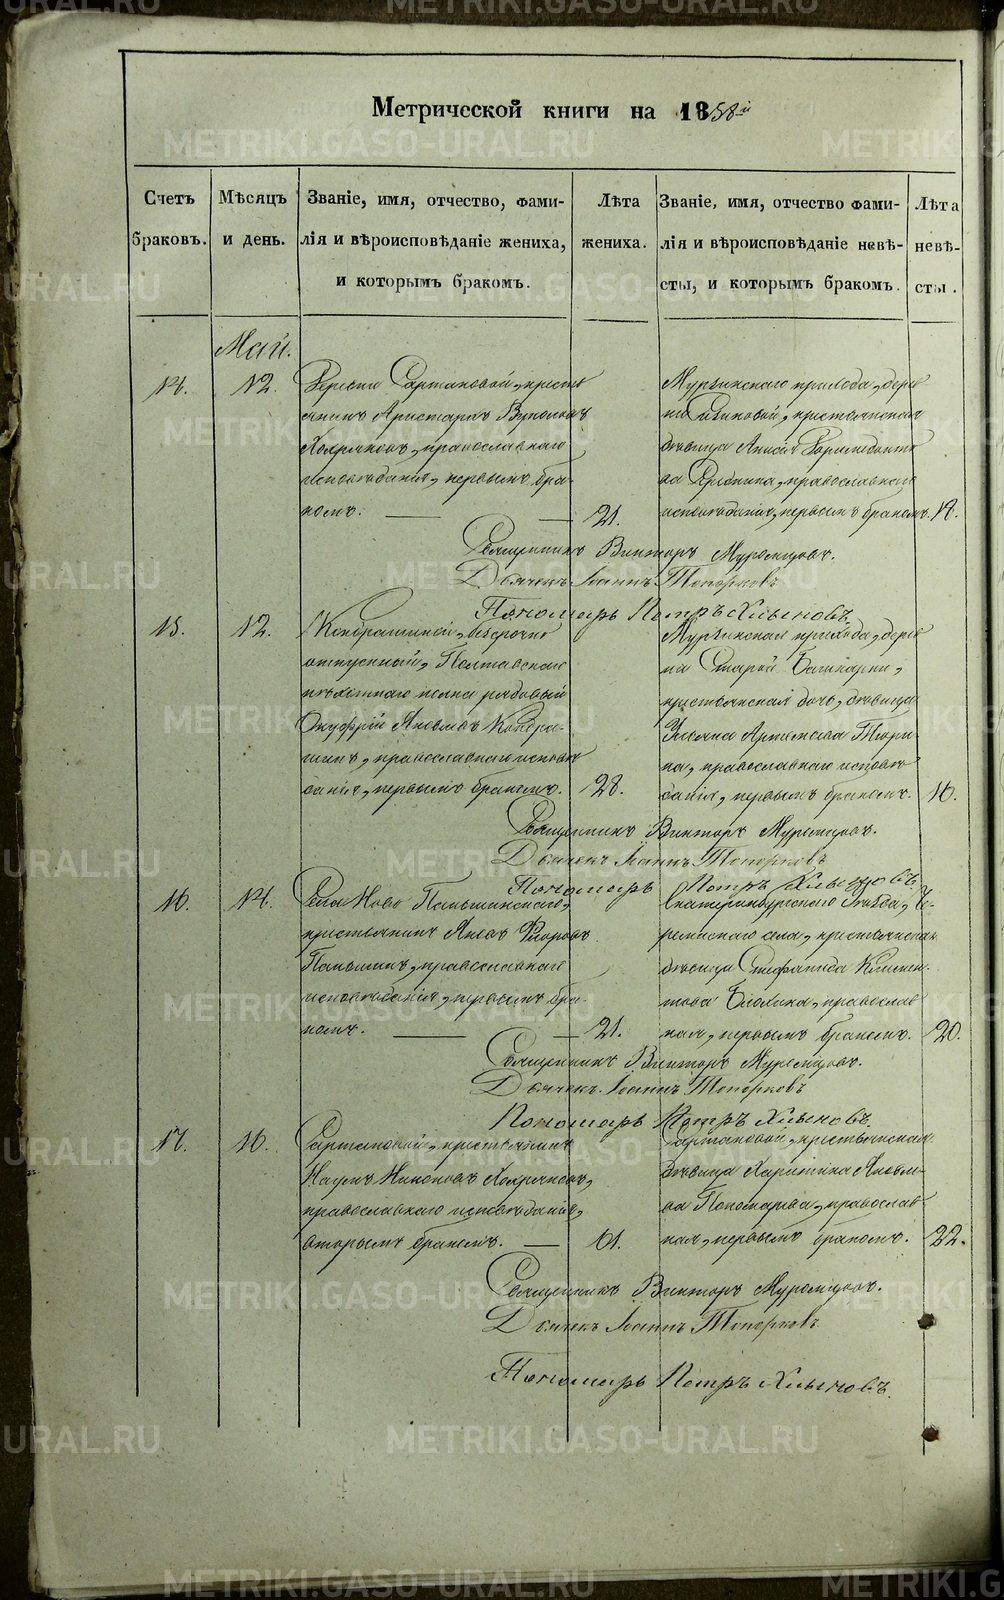 Метрической книги на 1858й
Счетъ браковъ.
Мѣсяцъ и день.
Званіе, имя, отчество, фами-
лія и вѣроисповѣданіе жениха,
и которымъ бракомъ.
Лѣта жениха.
Званіе, имя, отчество фами-
лія и вѣроисповѣданіе невѣ-
сты, и которымъ бракомъ.
Лѣта невѣ-
сты.
Май.
14.
12.
Деревни Сартаковой, кресть
янинъ Аристархъ
Хомяковъ, православнаго
исповѣданія, первымъ бра-
комъ.
21.
прихода, дерев
ни крестьянская
дѣвица Анисія
православнаго
исповѣданія, первымъ бракомъ.
Священникъ Викторъ Муромцовъ.
Дьячекъ Іоаннъ Топорковъ
Пономарь Петръ Хлыновъ.
15.
12.
безсрочно
отпускный, Полтавскаго
пѣхотнаго полка рядовый
Онуфрій Яковлевъ Кондра-
шинъ, православнаго исповѣ
данія, первымъ бракомъ.
28.
прихода, дерев
ни Старой
крестьянская дочь, дѣвица
Артемьева Тюри
на, православнаго исповѣ
данія, первымъ бракомъ.
Священникъ Викторъ Муромцовъ.
Дьячекъ Іоаннъ Топорковъ
Пономарь Петръ Хлыновъ.
16.
14.
Села Ново Паньшинскаго,
крестьянинъ
Паньшинъ, православнаго
исповѣданія, первымъ бра-
комъ.
21.
Екатеринбургскаго Уѣзда, Че-
ремисскаго села, крестьянская
дѣвица Стефанида Климен-
това православ
ная, первымъ бракомъ.
20.
Священникъ Викторъ Муромцовъ.
Дьячекъ Іоаннъ Топорковъ
Пономарь Петръ Хлыновъ.
17.
16.
Сартаковой, крестьянинъ
Наумъ Никоновъ Хомяковъ,
православнаго исповѣданія,
вторымъ бракомъ.
61.
Сартаковой, крестьянская
дѣвица Харитина Яковле-
ва Пономарева, православ
ная, первымъ бракомъ.
22.
Священникъ Викторъ Муромцовъ.
Дьячекъ Іоаннъ Топорковъ
Пономарь Петръ Хлыновъ.
METRIKI.GASO-URAL.RU